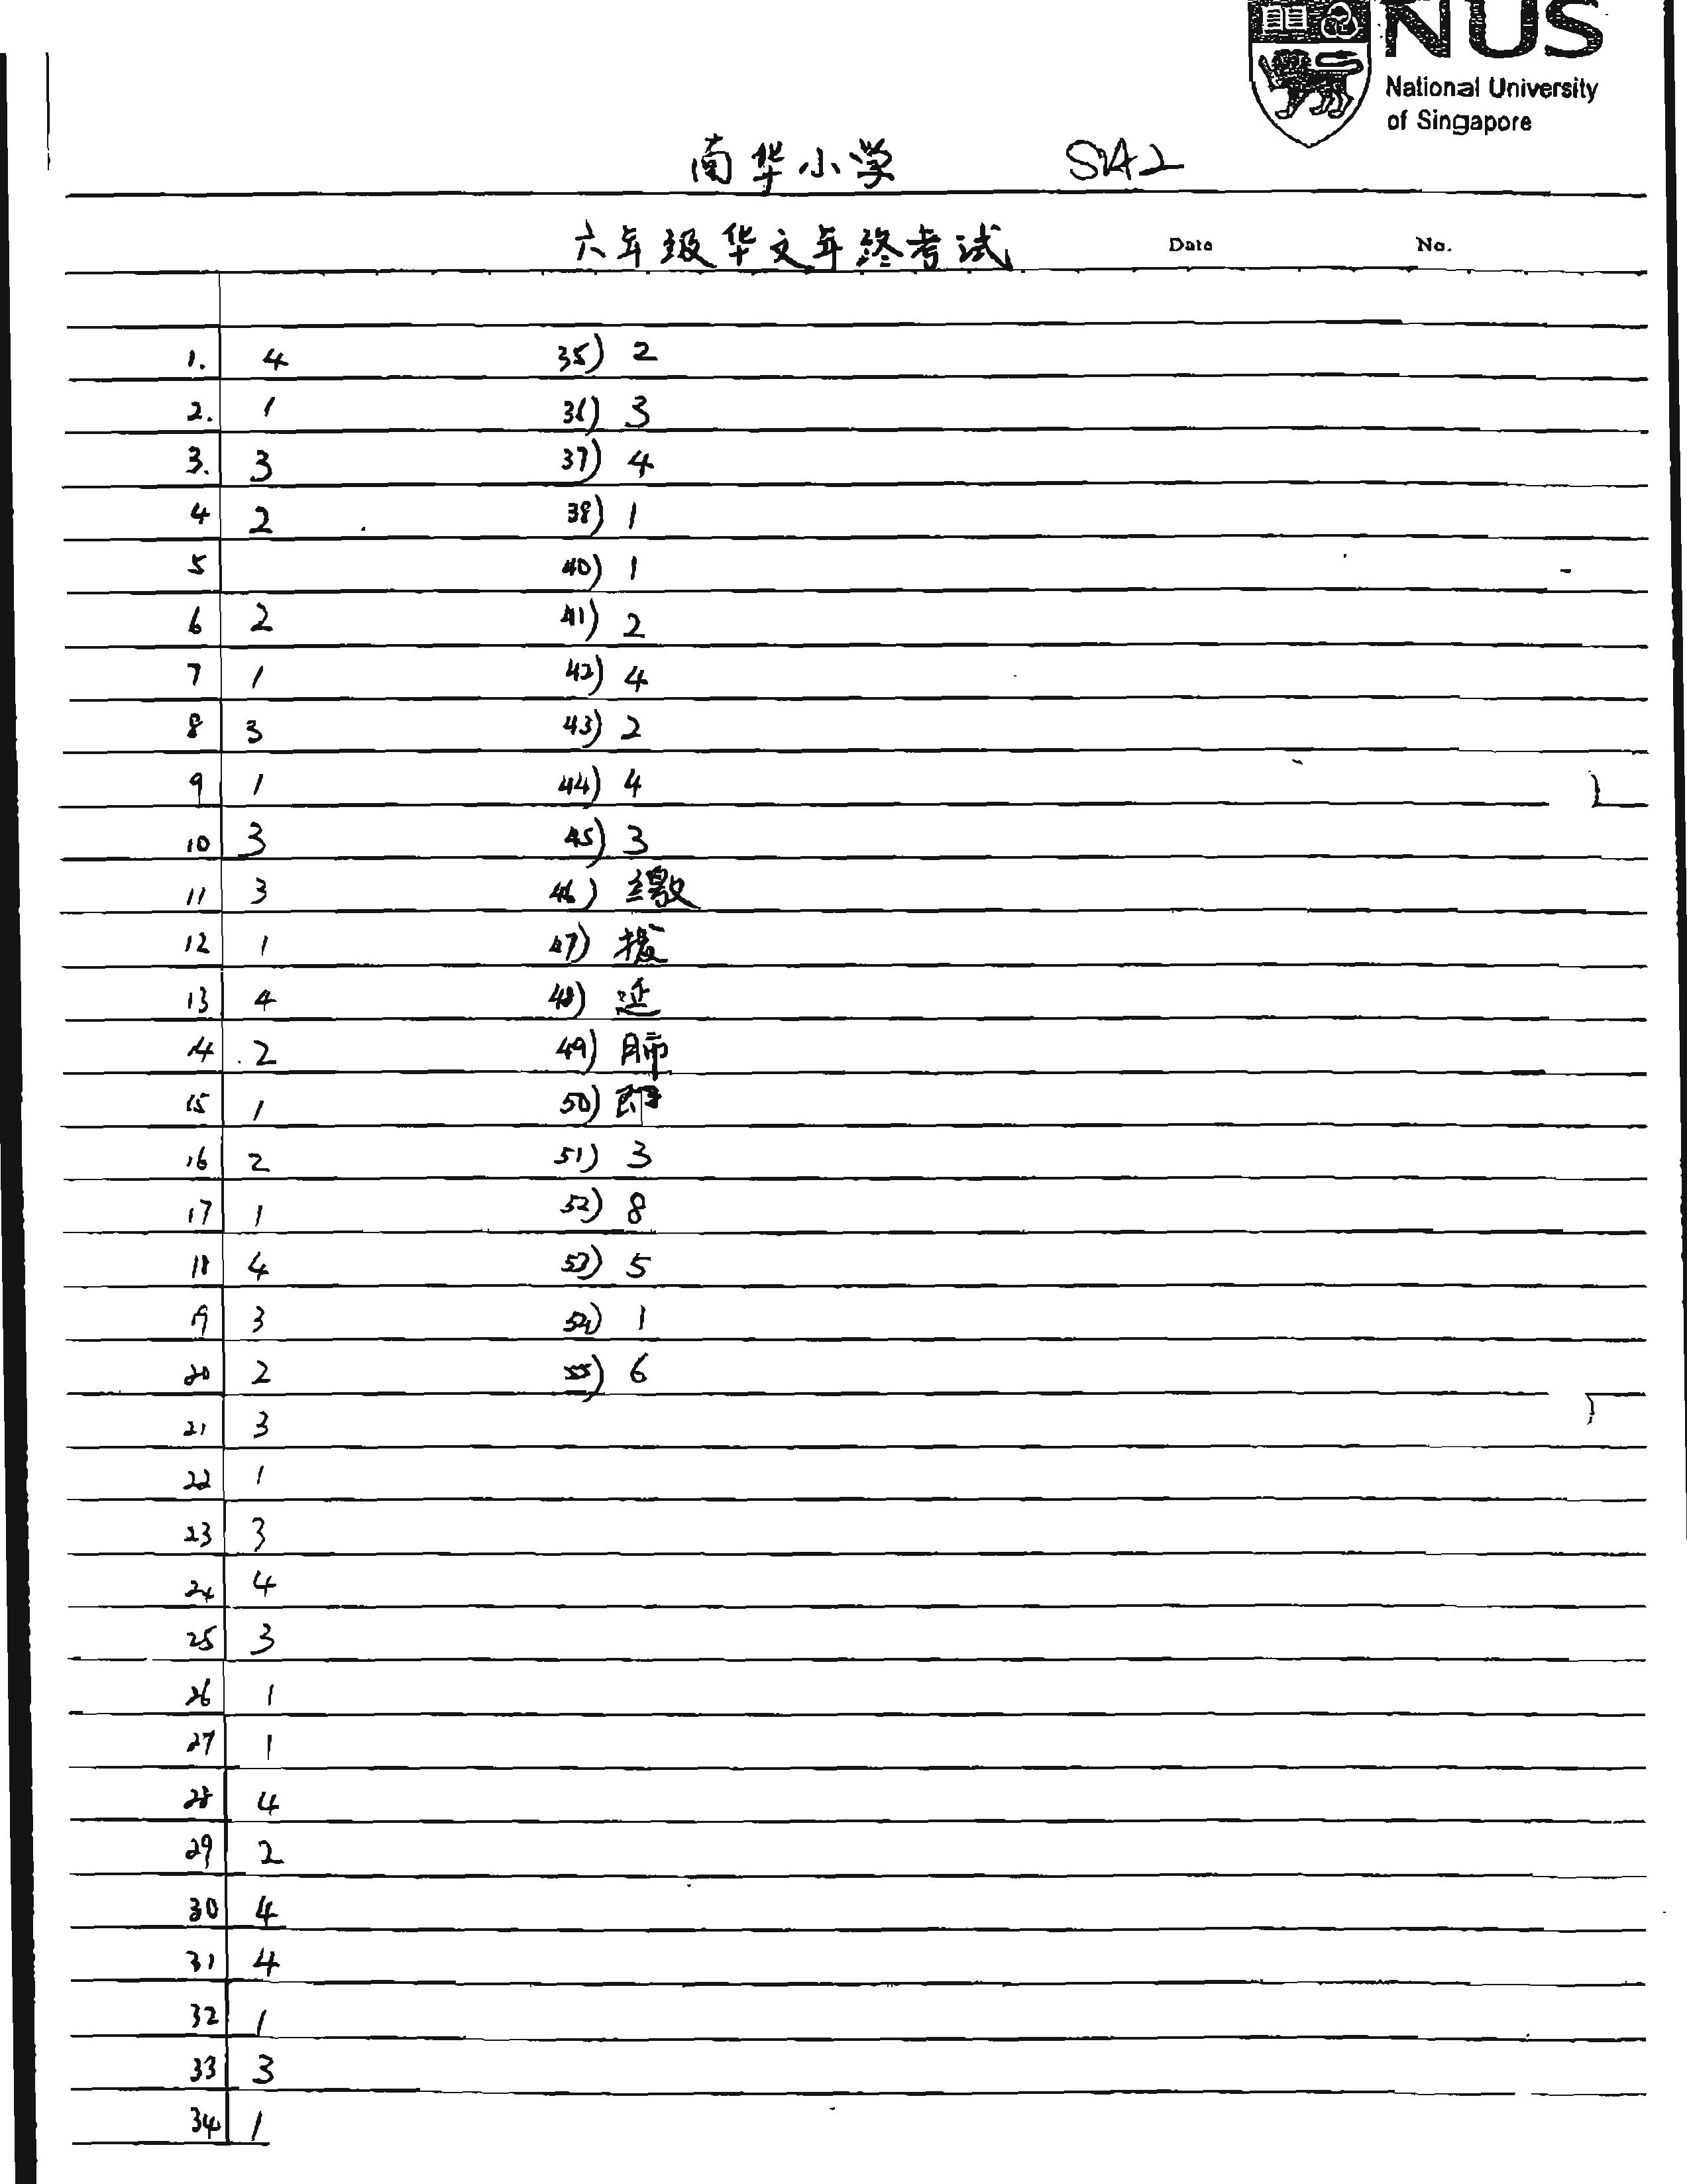 NUS
National University
of Singapore
南华小学 SA2
六年级华文年终考试 Date No.
1. 4
2. 1
3. 3
4 2
5
6 2
7 1
8 3
9 1
10 3
11 3
12 1
13 4
14 2
15 1
16 2
17 1
18 4
19 3
20 2
21 3
22 1
23 3
24 4
25 3
26 1
27 1
28 4
29 2
30 4
31 4
32 1
33 3
34 1
35) 2
36) 3
37) 4
38) 1
40) 1
41) 2
42) 4
43) 2
44) 4
45) 3
46) 缴
47) 拨
48)
49) 肺
50)
51) 3
52) 8
53) 5
54) 1
55) 6